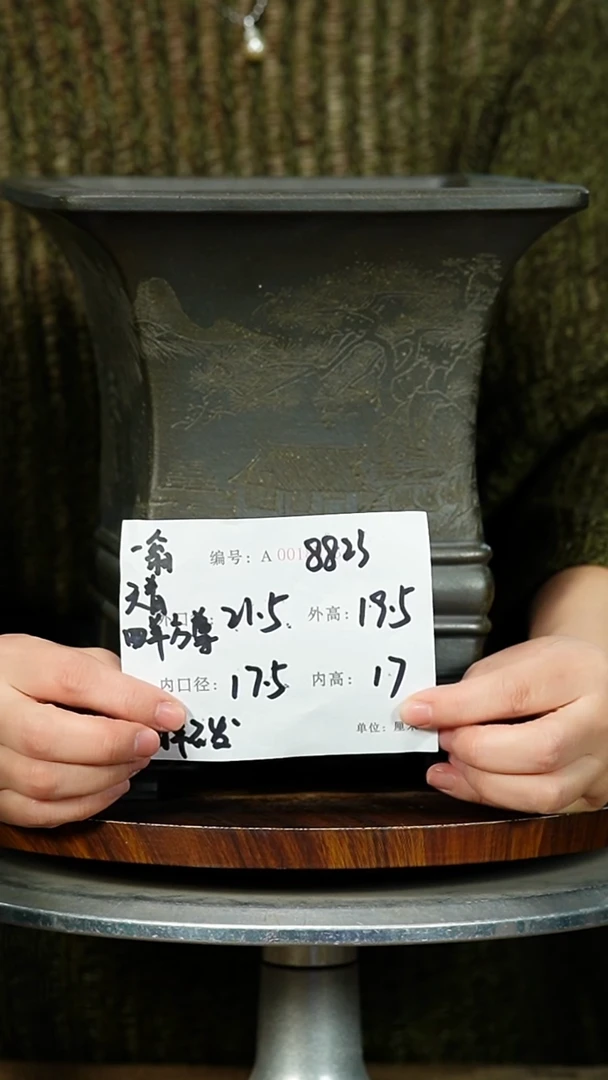 一翁 编号: A 001 8823
天青
外口径: 21.5 外高: 19.5
四羊方尊
内口径: 17.5 内高: 17
单位: 厘米